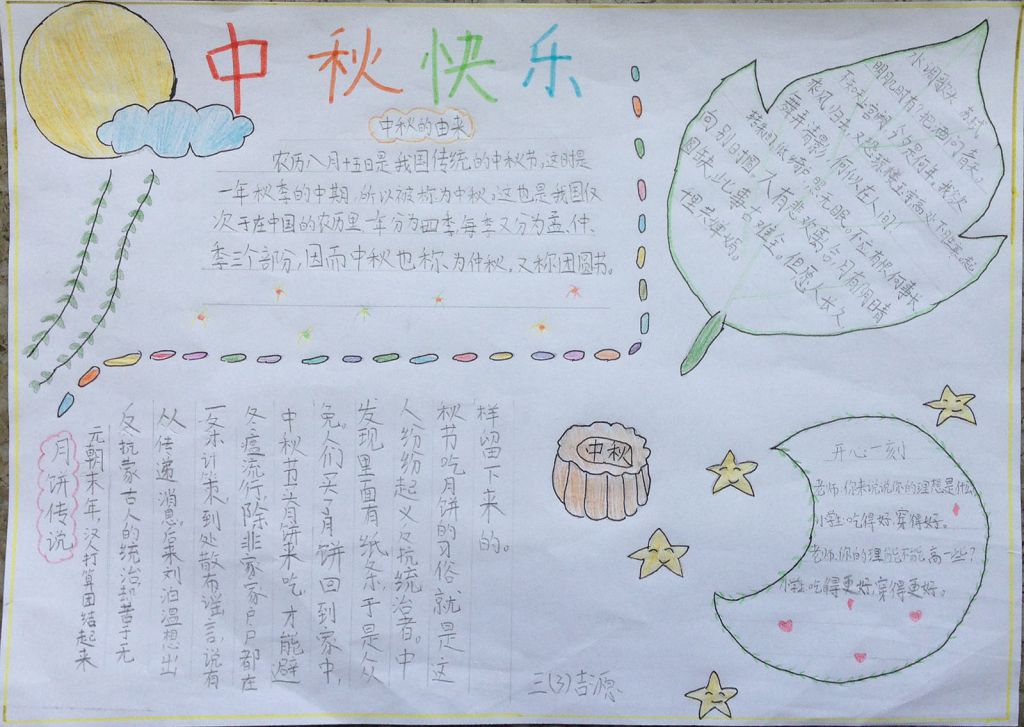 中秋快乐
中秋的由来
农历八月十五日是我国传统的中秋节,这时是
一年秋季的中期,所以被称为中秋。这也是我国仅
次于在中国的农历里一年分为四季每季又分为孟、仲、
季三个部分,因而中秋也称为仲秋。又称团圆节。
水调歌头 苏轼
明月几时有?把酒问青天。
不知天上宫阙,今夕是何年。我欲
乘风归去,又恐琼楼玉宇,高处不胜寒。起
舞弄清影,何似在人间!
转朱阁,低绮户,照无眠。不应有恨,何事长
向别时圆?人有悲欢离合,月有阴晴
圆缺,此事古难全。但愿人长久,
月饼传说
元朝末年,汉人打算团结起来
反抗蒙古人的统治却苦于无
从传递消息。后来刘泊温想出
一条计策,到处散布谣言,说有
冬瘟流行,除非家家户户都在
中秋节买月饼来吃,才能避
免。人们买了月饼回到家中,
发现里面有纸条,于是众
人纷纷起义反抗统治者。中
秋节吃月饼的习俗就是这
样留下来的。
中秋
开心一刻
老师:你来说说你的理想是什么
小学生:吃得好,穿得好。
老师:你的理能不能高一些?
小学生:吃得更好,穿得更好。
三(3)吉源